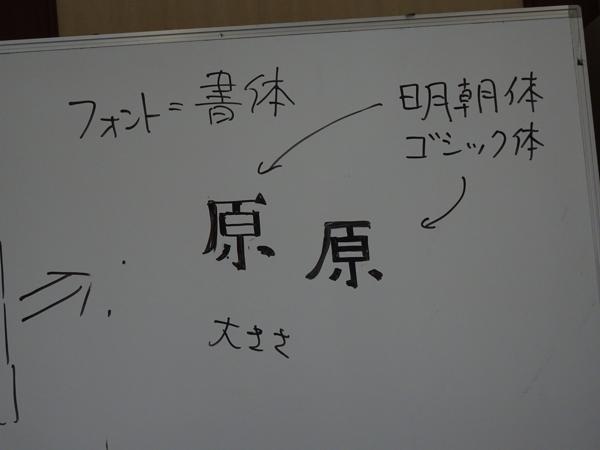 フォント=書体
明朝体
ゴシック体
原 原
大きさ